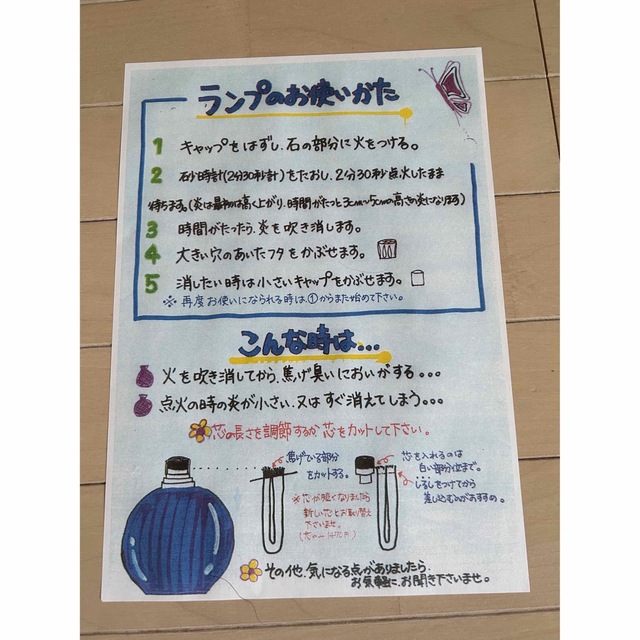 ランプのお使いかた
1 キャップをはずし、石の部分に火をつける。
2 砂時計(2分30秒計)をたおし、2分30秒点火したまま
待ちます。(炎は最初は高く上がり、時間がたつと3cm〜5cmの高さの炎になります)
3 時間がたったら、炎を吹き消します。
4 大きい穴のあいたフタをかぶせます。
5 消したい時は小さいキャップをかぶせます。
※ 再度お使いになられる時は①からまた始めて下さい。
こんな時は...
火を吹き消してから、焦げ臭いにおいがする。。。
点火の時の炎が小さい、又はすぐ消えてしまう。。。
芯の長さを調節するか、芯をカットして下さい。
焦げている部分
をカットする。
※芯が短くなりましたら
新しい芯とお取り替え
下さいませ。
芯を入れるのは
白い部分位まで。
しるしをつけてから
差し込むのがおすすめ。
その他、気になる点がありましたら、
お気軽に、お聞き下さいませ。